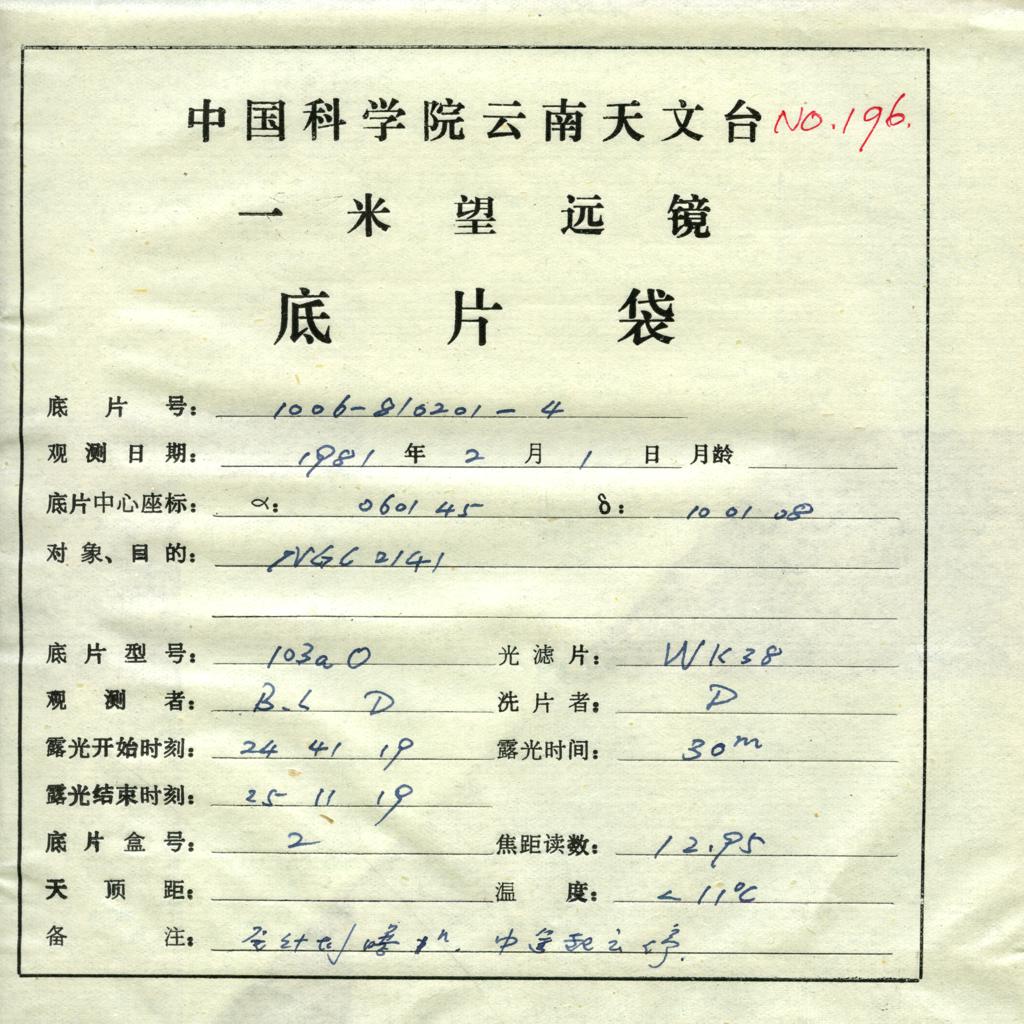 中国科学院云南天文台 NO.196.
一米望远镜
底片袋
底片号: 1006-810201-4
观测日期: 1981 年 2 月 1 日 月龄
底片中心座标: α: 0601 45 δ: 10 01 08
对象、目的: NGC 2141
底片型号: 103aO 光滤片: WK38
观测者: B.L D 洗片者: D
露光开始时刻: 24 41 19 露光时间: 30m
露光结束时刻: 25 11 19
底片盒号: 2 焦距读数: 12.95
天顶距: 温度: 11°C
备注: 中